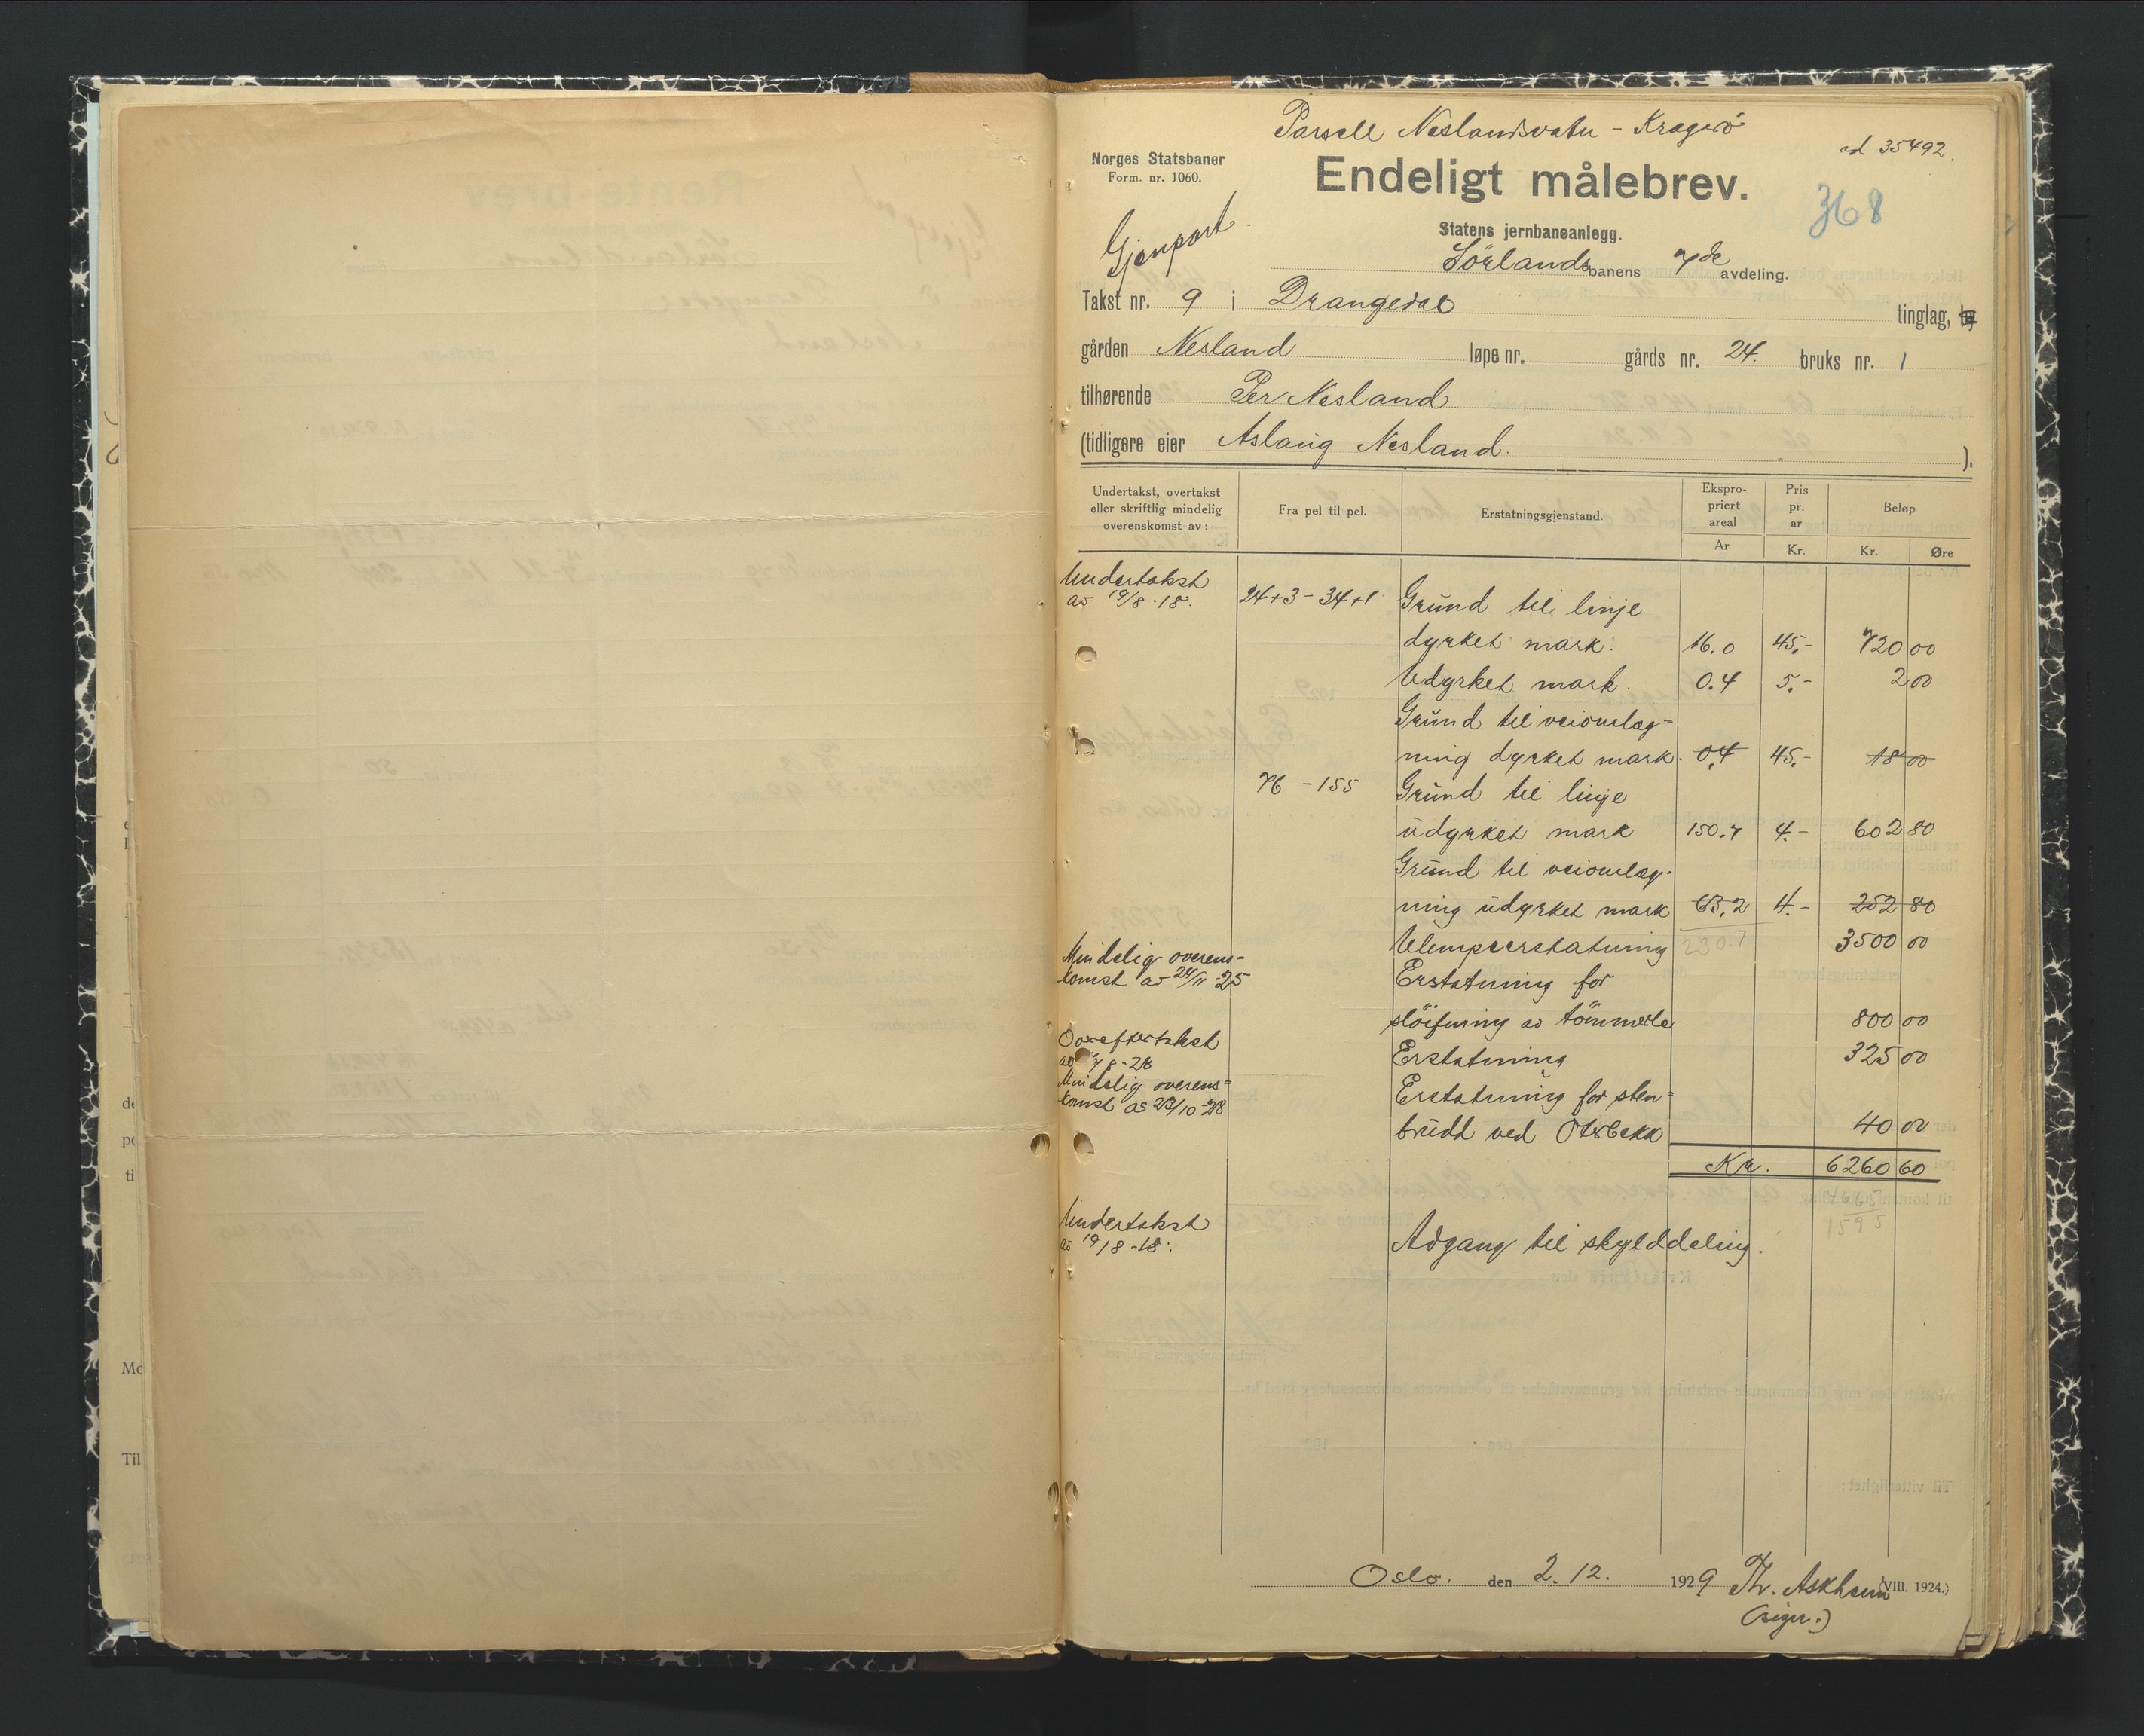 Parsell Neslandsvatn - Kragerø
ad 35492.
Norges Statsbaner
Form. nr. 1060.
Endeligt målebrev.
368
Gjenpart.
Statens jernbaneanlegg.
Sørlandsbanens 7de avdeling.
Takst nr. 9 i Drangedal tinglag,
gården Nesland løpe nr. gårds nr. 24. bruks nr. 1
tilhørende Per Nesland
(tidligere eier Aslaug Nesland. ).
Undertakst, overtakst eller skriftlig mindelig overenskomst av: Fra pel til pel. Erstatningsgjenstand. Ekspropriert areal Ar Pris pr. ar Kr. Beløp Kr. Øre
Undertakst
av 19/8-18. 24+3 - 34+1 Grund til linje
dyrket mark. 16.0 45.- 720 00
Udyrket mark. 0.4 5.- 2 00
Grund til veiomlæg-
ning dyrket mark. 0.4 45.- 18 00
76 - 155 Grund til linje
udyrket mark 150.7 4.- 602 80
Grund til veiomlæg-
ning udyrket mark 63.2 4.- 252 80
Ulempeerstatning 230.7 3500 00
Mindelig overens-
komst av 24/11-25 Erstatning for
sløifning av tømmerle 800 00
Overeftertakst
Erstatning 325 00
Mindelig overens-
komst av 23/10-28 Erstatning for sten-
brudd ved Oterbekk 40 00
Kr. 6260 60
1595
Undertakst
av 19/8-18. Adgang til skylddeling.
Oslo. den 2.12. 1929 Th. Askheim
(VIII. 1924.)
(sign.)
de
ti
Mo
Til